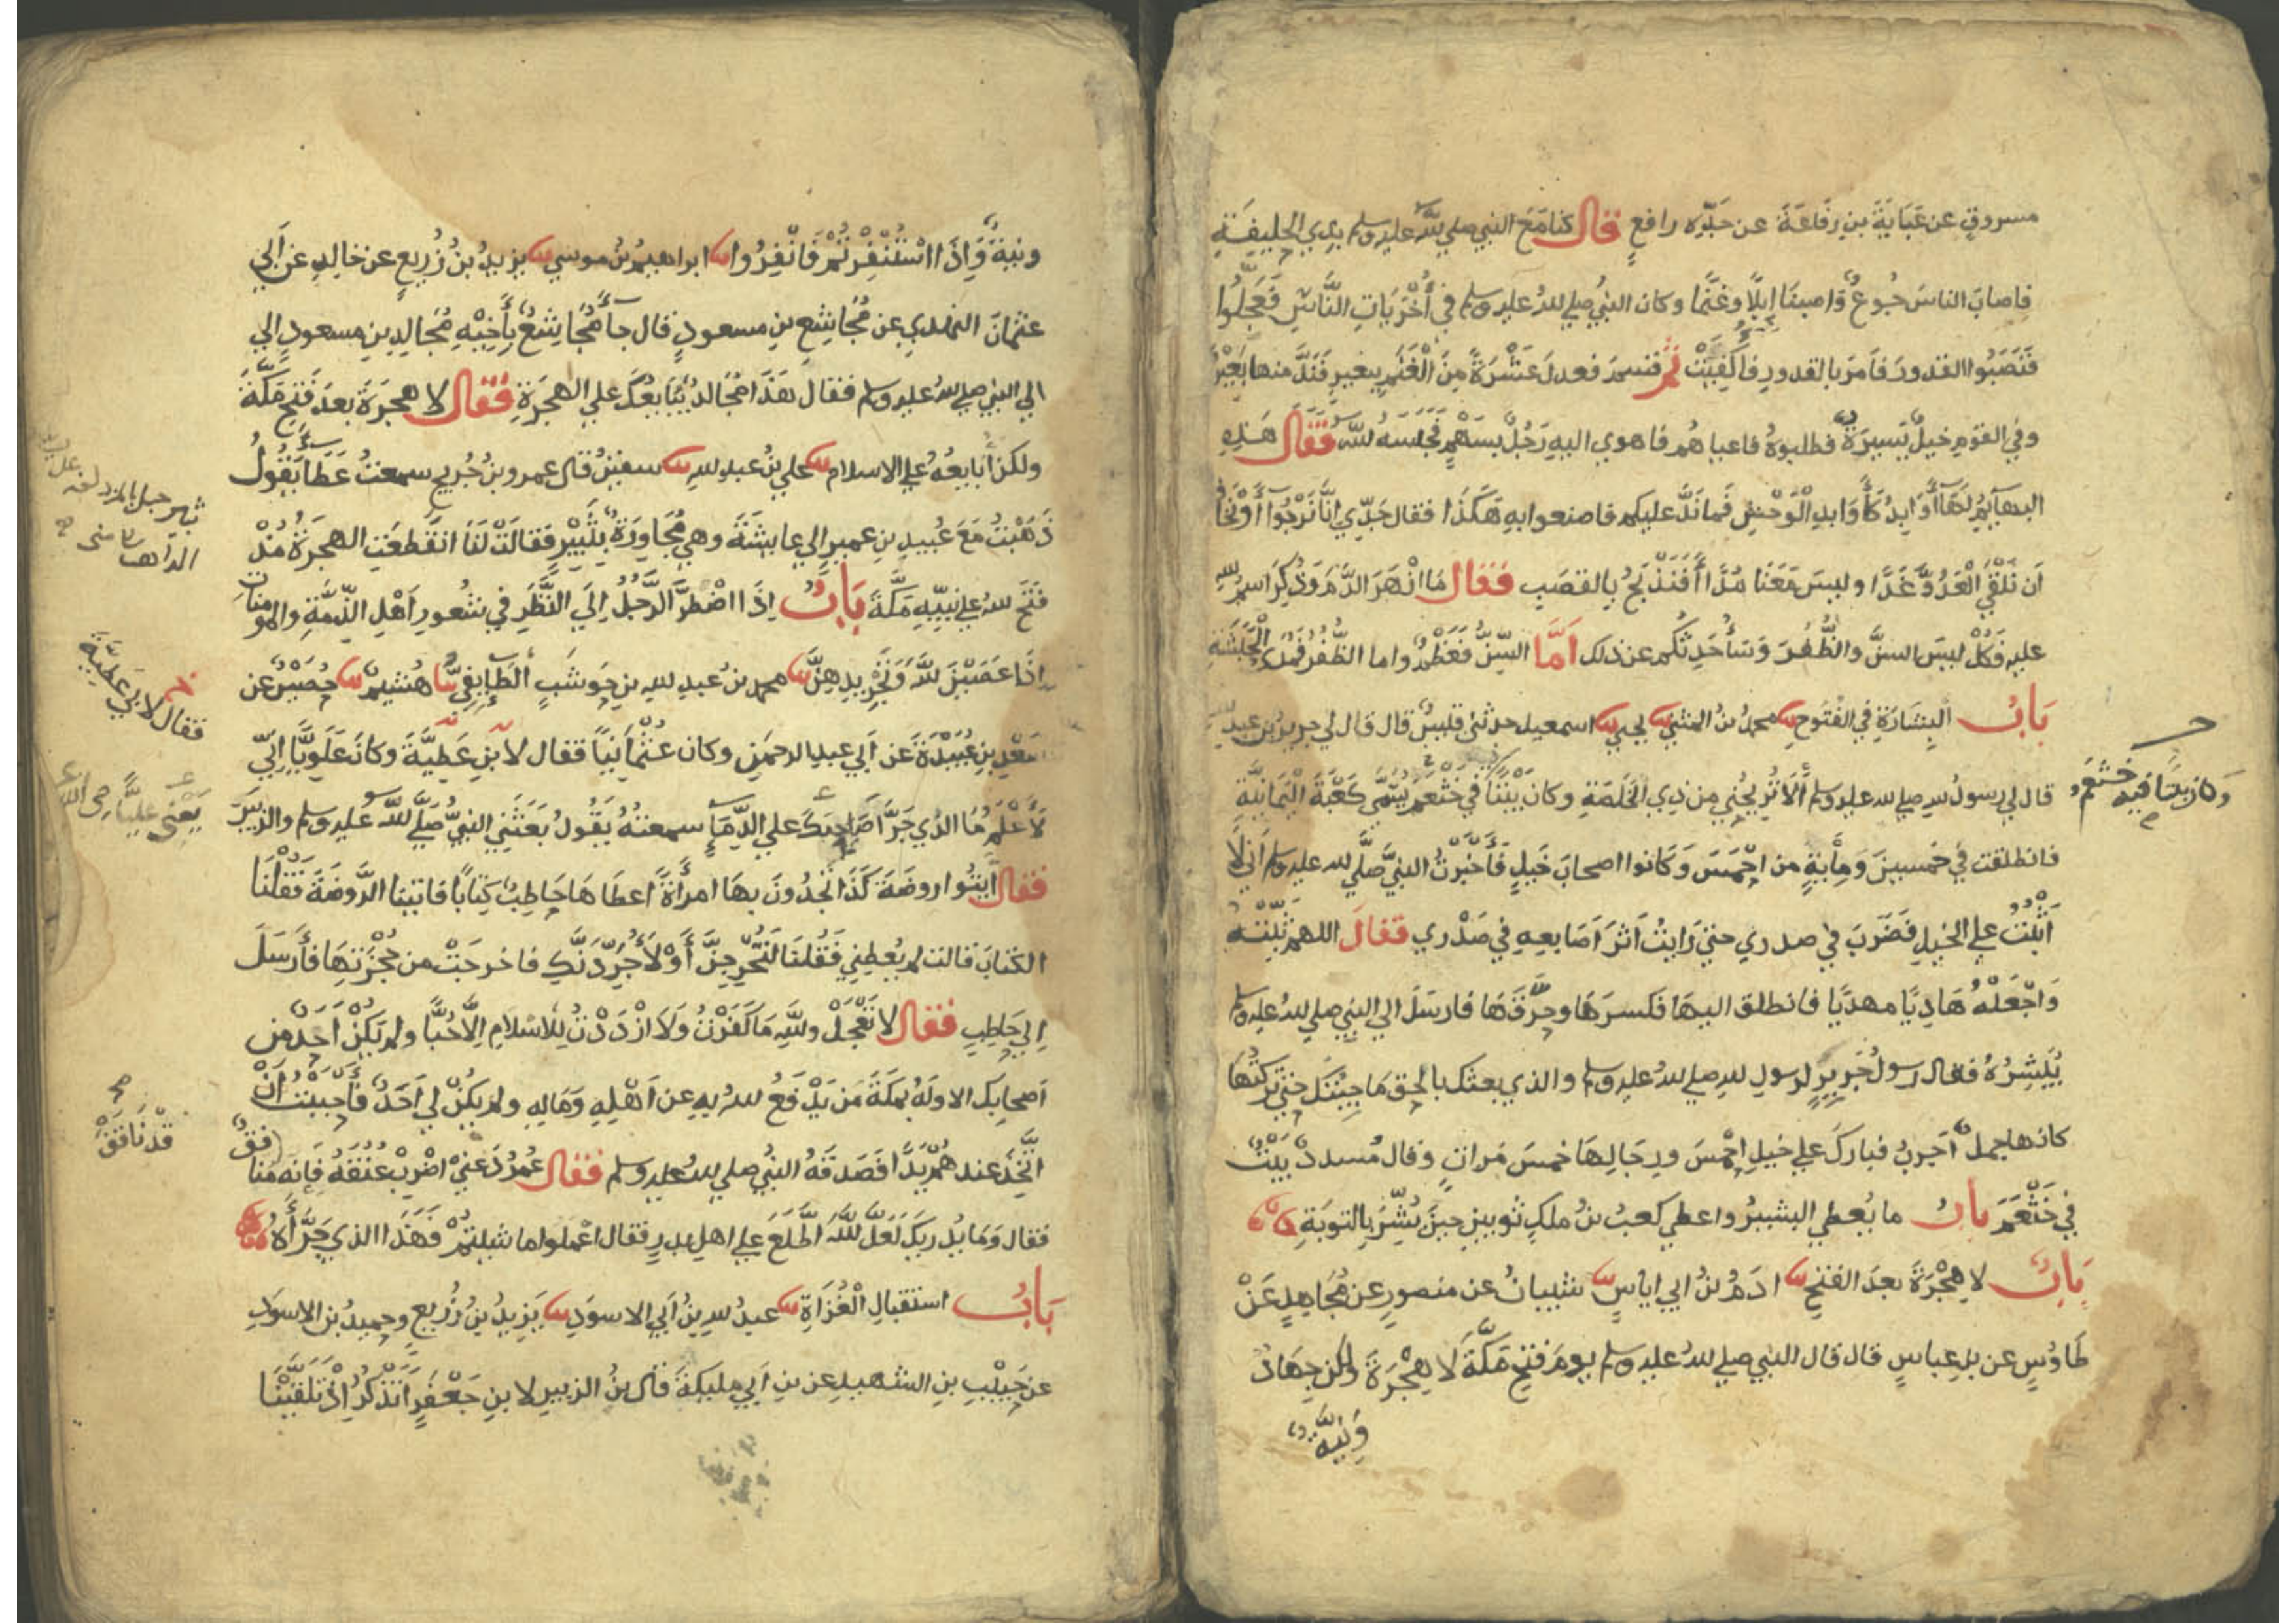 مسروقٍ عن عَبَايَةَ بنِ رِفَاعَةَ عن جَدِّه رافعٍ قال كنا مَعَ النبي صلي الله عليه وسلم بِذِي الحُلَيفَةِ
فاصابَ الناسَ جُوعٌ وَاصبنَا اِبِلًا وغنَمًا وكان النبيُ صلي للهُ عليه وسلم في أُخْرَيَاتِ النَّاسِ فَعَجِلُوا
فَنَصَبُوا القدورَ فاَمرَ بالقدورِ فاُكْفِيَتْ ثم قسمَ فعدلَ عَشْرَةً مِنَ الْغَنَمِ ببعيرٍ فَنَدَّ منها بَعِيْرٌ
وفي القوم خيلٌ يَسِيرَةٌ فطلبوهُ فاعياهُم فاهوي اليهِ رَجُلٌ بسَهْمٍ فَحَبَسَهُ للهُ فَقَالَ هَذِهِ
البهآيِمُ لَهَآ أَوَابِدُ كَأَوَابِدِ الْوَحْشِ فَمانَدَّ عليكم فاصنعوا بهِ هَكَذَا فقال جَدِّي اِنَّا نَرْجُوا أَوْ نَخَافُ
اَن نَلْقَي الْعَدُوَّ غَدًا وليسَ مَعَنَا مُدًا أَفَنَذْبَحُ بِالقصَبِ فَقَالَ مَا انْهَرَ الدَّمَ وَذُكِرَ اسمُ للهِ
عليهِ فَكُلْ ليسَ السنَّ والظُّفُرَ وَسَأُحَدِثُكُم عن ذلك اَمَّا السِّنُّ فَعَظْمٌ واما الظُّفُرُ فَمُدَي الْحَبَشَةِ
بَابُ الْبِشَارَةِ في الفُتُوحِ محمدُ بنُ المثني يحيي اسمعيل حدثني قيسٌ قال قال لي جريرُ بن عبدِ للهِ
قال لي رسولُ للهِ صلي لله عليه وسلم أَلَا تُرِيحُنِي من ذِي الخَلَصَةِ وكان بَيْتًا في خَثْعَم يُسَمَّي كَعْبَةَ الْيَمَانِيَّةِ
وَكان بيتًا فيه خَثْعَم
فانطلقت في خمسينَ وَمِأيةٍ من احْمَسَ وَكَانوا اصحابَ خَيلٍ فَأَخْبَرْتُ النبيَّ صلَّي لله عليه وسلم اَني لَا
اَثْبُتُ علي الخيلِ فَضَرَبَ في صدرِي حتي رَايتُ اَثَرَ اَصَابعِهِ في صَدْرِي فَقَالَ اللهم ثَبِّتْهُ
وَاجْعَلْهُ هَادِيًا مهديًا فانطلق اليهَا فكسرَهَا وحرَّقَهَا فارسَلَ الي النبيِ صلي للهُ عليه وسلم
يُبَشِرُهُ فقال رسولُ جَرِيرٍ لرسولِ للهِ صلي للهُ عليه وسلم والذي بعثك بالحق مَا جِيتُكَ حتي تركتُهَا
كانها جملٌ اَجربُ فباركَ علي خيلِ احْمَسَ ورِجَالِهَا خمسَ مَراتٍ وقال مُسددٌ بَيْتٌ
في خَثْعَمَ بابُ ما يُعطي البشيرُ واعطي كعبُ بنُ ملكٍ ثوبينِ حينَ بُشِّرَ بالتوبَةِ
بَابُ لا هِجْرَةَ بعدَ الفتحِ ادَمُ بنُ ابي اياسٍ شيبانُ عن منصورٍ عن مُجَاهِدٍ عَنْ
طَاوُسٍ عن بنِ عباسٍ قال قال النبي صلي للهُ عليه وسلم يومَ فتحِ مَكَّةَ لَا هِجْرَةَ ولكن جِهَادٌ
وَنِيَّةٌ
ونيةٌ وَاِذَا اسْتُنْفِرْتُمْ فَانْفِرُوا ابراهيمُ بنُ موسي يزيدُ بنُ زُرَيعٍ عن خالدٍ عن اَبي
عثمانَ النهدي عن مُجَاشِعِ بنِ مسعودٍ قال جآءَ مُجَاشِعٌ بِأَخِيْهِ مُجَالِدِ بنِ مسعودٍ الي
الي النبي صلي للهُ عليه وسلم فقال هَذَا مُجَالدٌ يُبَايعُكَ علي الهجرَةِ فَقَالَ لا هجرَةَ بعدَ فتحِ مَكَّةَ
ولكن اُبَايعُهُ علي الاسلام علي بنُ عبدِ للهِ سفينُ قال عمرو وبنُ جُريجٍ سمعتُ عَطَآءً يَقُولُ
ذَهَبْتُ مَعَ عُبيدِ بنِ عميرٍ الي عايشَةَ وهي مُجَاوِرَةٌ بِثَبِيْرٍ فَقالَتْ لَنَا انقَطعَتِ الهجرَةُ مُنْذُ
ثبير جبل بالمزدلفة علي يسار
الذاهب الي مني
فتَح للهُ علي نبيِّهِ مَكَّةَ بَابُ اِذَا اضْطرَّ الرَّجُلُ اِلَي النَّظَرِ في شُعُورِ اَهْلِ الذِّمَّةِ والمومناتِ
اِذَا عَصَيْنَ للَّهَ وَتَجْرِيدِهِنَّ محمدُ بنُ عبدِ للهِ بنِ حَوشَبٍ الطَّايِفِيُّ هُشَيمٌ حُصَيْنٌ عن
سَعْدِ بنِ عُبَيْدَةَ عَن اَبي عبدِ الرحمنِ وكان عُثْمَانِيًا فقال لابْنِ عَطِيَّةَ وكانَ عَلَوِيًّا اِنِّي
فقال لابن عطيَّةَ
لَأَعْلَمُ مَا الذي جَرَّأَ صَاحِبَكَ علي الدِّمَآءِ سمعتُهُ يَقُولُ بَعَثَنِي النبيُّ صَلَّي للهُ عليه وسلم والزبيرَ
يَعْنِي عليًّا رضي الله عنه
فقال ايتُوا روضَةَ كَذَا تجدُونَ بهَا امرأَةً اَعطَاهَا حَاطِبٌ كِتابًا فاتينا الرَّوضَةَ فَقُلْنَا
الكتابَ قالت لم يُعْطِنِي فَقُلنَا لَتُخْرِجِنَّ أَوْ لَأُجَرِّدَنَّكِ فاخرجَتْ من حُجْزَتِهَا فأَرسَلَ
اِلي حَاطِبٍ فَقَالَ لا تَعْجَلْ وللهِ مَا كَفَرْتُ وَلَا ازْدَدْتُ لِلْاسْلامِ اِلَّا حُبًّا ولم يَكُنْ اَحَدٌ من
اَصحابِكَ الا ولَهُ بمكَةَ مَن يَدْفَعُ للهُ بهِ عن اَهْلِهِ وَمَالِهِ ولم يكُنْ لي اَحَدٌ فأَحْبَبْتُ اَنْ
اتَّخِذَ عندهُمْ يَدًا فَصَدقَهُ النبيُ صلي للهُ عليه وسلم فَقَالَ عُمَرُ دَعْنِي اضْرِبْ عُنُقَهُ فَانِه مُنَافِقٌ
قَدْ نَافَقَ
فقال وَمَا يُدْرِيكَ لَعَلَّ للهَ اطَّلَعَ علي اهلِ بدرٍ فقال اعْمَلوا ما شيتُمْ فَهَذَا الذي جَرَّأَهُ
بَابُ استقبالِ الْغُزَاةِ عبدُ للهِ بنُ اَبي الاسوَدِ يَزِيدُ بنُ زُرَيعٍ وحميدُ بن الاسوَدِ
عن حَبِيبِ بنِ الشهيدِ عن بنِ اَبي مليكةَ قال بنُ الزبيرِ لابنِ جَعْفَرٍ اَتَذْكُرُ اِذْ تَلَقَّيْنَا